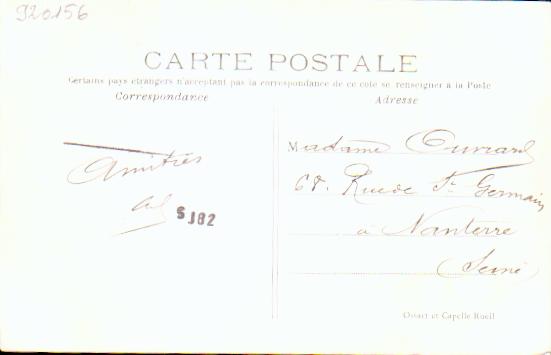 920156
CARTE POSTALE
Certains pays étrangers n'acceptant pas la correspondance de ce côté se renseigner à la Poste
Correspondance
Adresse
Amitiés
SJ82
Madame Ouvrard
68. Rue de St Germain
à Nanterre
(Seine)
Ossart et Capelle Rueil